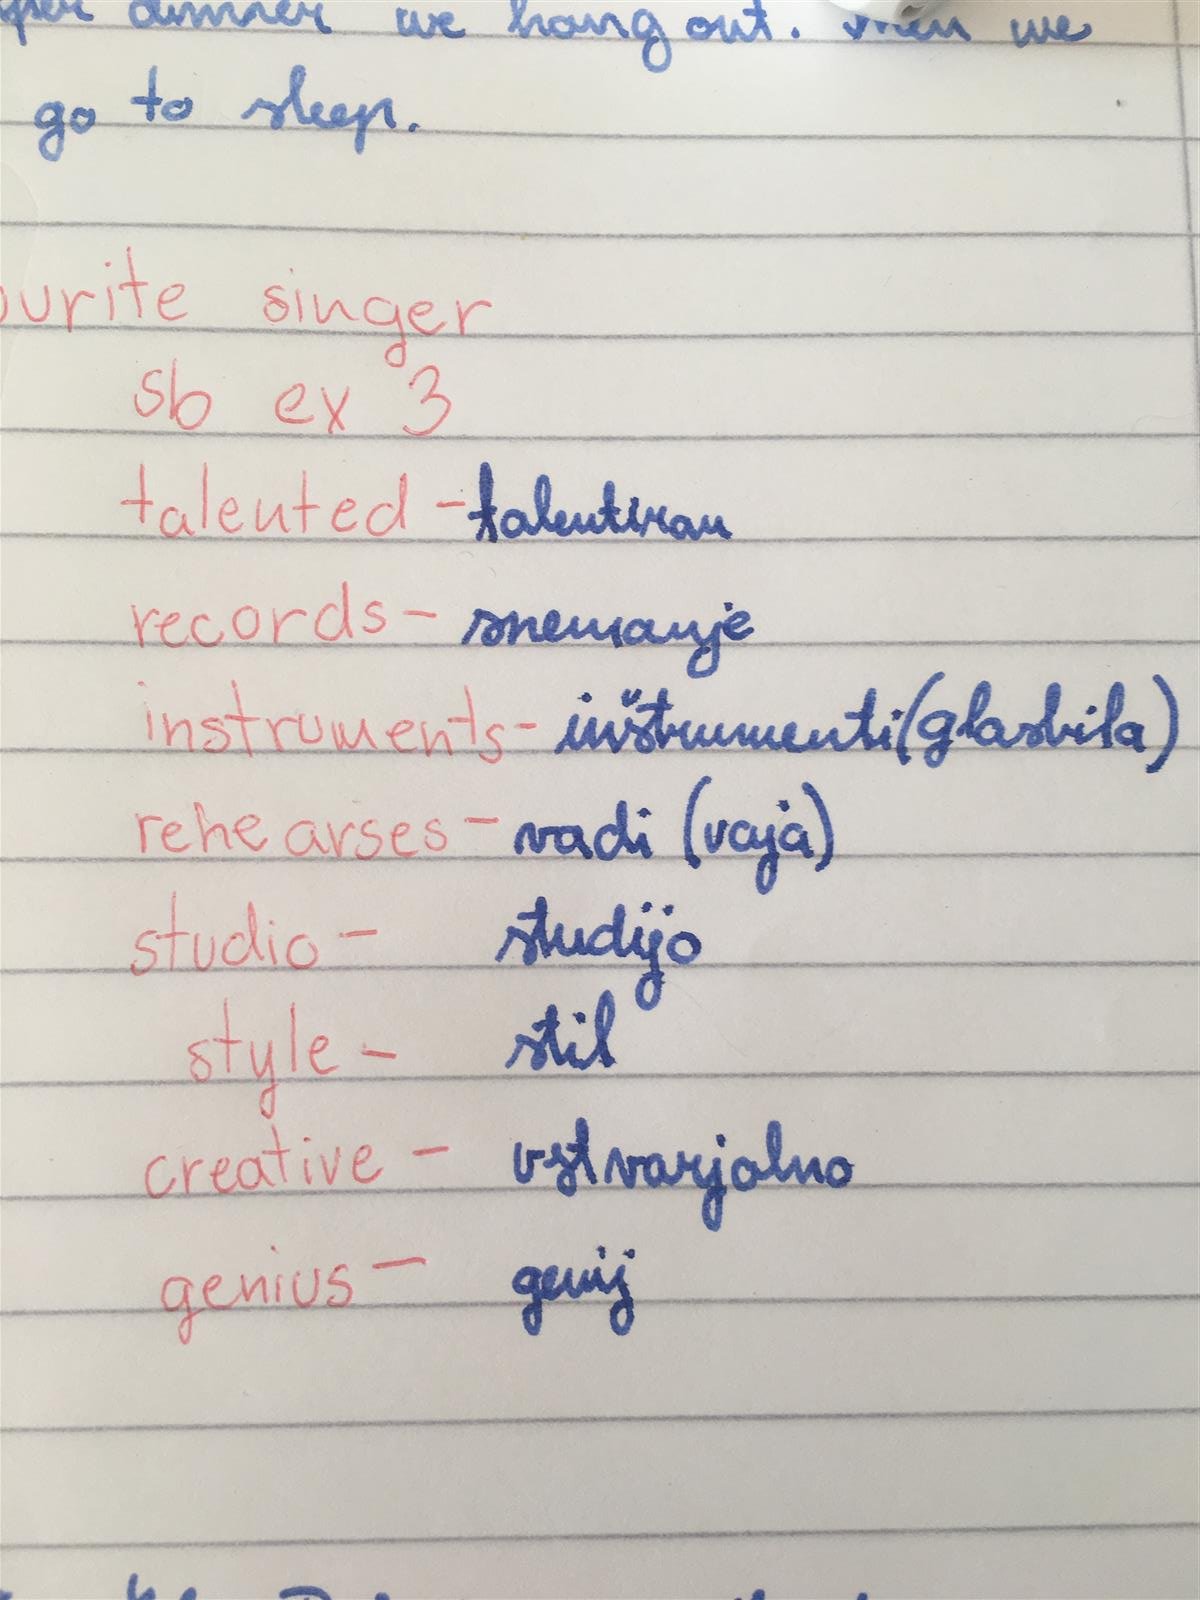 dinner we hang out. Then we
go to sleep.
ourite singer
sb ex 3
talented - talentiran
records - snemanje
instruments - inštrumenti (glasbila)
rehearses - vadi (vaja)
studio - studijo
style - stil
creative - ustvarjalno
genius - genij